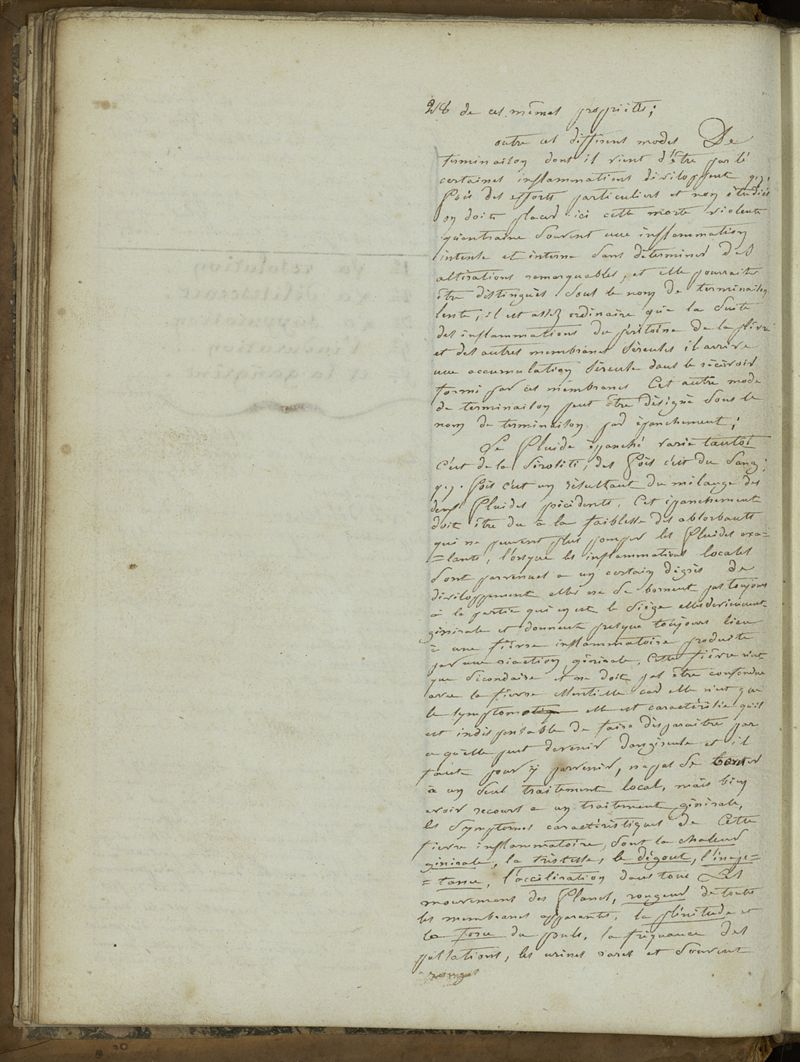 28 de ces mêmes propriétés;
outre ces différens modes De
terminaison dont il vient d'être parlé
certaines inflammations développent qq.
Fois des efforts particuliers et non étudiés
on doit placer ici cette morte violente
qu'entraine souvent une inflammation
intense et interne sans determiner des
altérations remarquables, et elle pourrait
être distinguée sous le nom de terminaison
lente; il est assez ordinaire que la suite
des inflammations du péritoine de la plèvre
et des autres membranes séreuses il arrive
une accumulation séreuse dans le réservoir
formé par ces membranes Cet autre mode
de terminaison peut être désigné sous le
nom de terminaison par épanchement;
Le Fluide épanché varie tautot
c'est de la sérosité, des Fois c'est du sang;
q.q. Fois c'est un résultant du mélange des
deux Fluides précédents, Cet épanchement
doit être du à la faiblesse des absorbants
qui ne peuvent plus pomper les Fluides exa-
=lants, l'orsque les inflammations locales
sont parvenues a un certain dégrés de
développement elles ne se bornent pas toujours
à la partie qui en est le siège elles deviennent
générale et donnent presque toujours lieu
à une fièvre inflammatoire produite
par une réaction générale, Cette fièvre n'est
que sécondaire et ne doit pas être confondue
avec la fièvre essentielle car elle n'est que
le symptome elle est caractérisée qu'il
est indispensable de faire disparaître par
ce qu'elle peut devenir dangéreuse et il
faut pour y parvenir, ne pas se borner
à un seul traitement local, mais bien
avoir recours a un traitement générale,
les symptomes caractéristiques de Cette
fièvre inflammatoire, sont la chaleur
générale, la tristesse, le dégout, l'inap-
=tance, l'accéliration dans tous Les
mouvement des Flancs, rougeur de toute
les membranes apparente, la plénitude et
la force du pouls, la fréquence des
pulsations, les urines rares et souvent
rouges